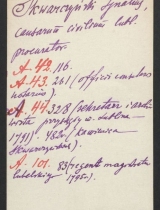 Skwarczyński Ignacy,
causarum civilium lubl.
procurator.
A. 42. 116.
A. 43. 261 (officii consularis
notarius).
A. 47. 328 (sekretarz i archi
wista przysięgły m. Lublina
1791) 482v. (kamienica
Skwarczyńskiego).
A. 101. 83 (regent magistratu
lubelskiego 1795).